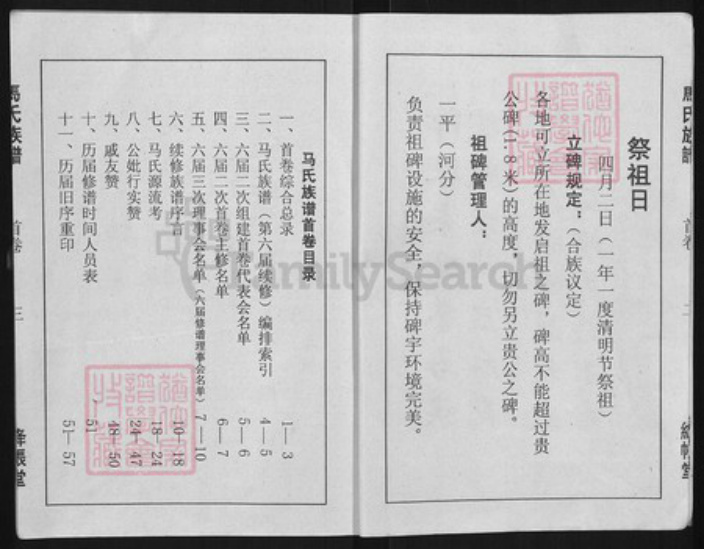 祭祖日
四月二日（一年一度清明节祭祖）
立碑规定：（合族议定）
各地可立所在地发启祖之碑，碑高不能超过贵
公碑（1.8米）的高度，切勿另立贵公之碑。
祖碑管理人：
一平（河分）
负责祖碑设施的安全，保持碑宇环境完美。
马氏族谱首卷目录
一、首卷综合总录 1—3
二、马氏族谱（第六届续修）编排索引 4—5
三、六届二次组建首卷代表会名单 5—6
四、六届二次首卷主修名单 6—7
五、六届三次理事会名单（六届修谱理事会名单） 7—10
六、续修族谱序言 10—18
七、马氏源流考 18—24
八、公妣行实赞 24—47
九、戚友赞 48—50
十、历届修谱时间人员表 51
十一、历届旧序重印 51—57
馬氏族譜
首卷
三
絳帳堂
FamilySearch